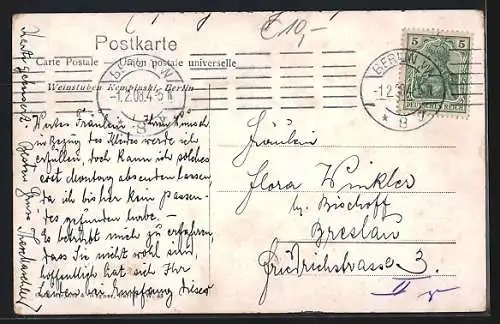 €10,-
Postkarte
Carte Postale — Union postale universelle
Weinstuben Kempinski-Berlin
BERLIN W
-1.2.08.4-5N
* 8
BERLIN W
-1.2
* 8
5 5
DEUTSCHES REICH
Wertes Fräulein, Ihren Wunsch
in Bezug des Kleides werde ich
erfüllen, doch kann ich solches
erst Montag absenden lassen
da ich bisher kein passen-
des gefunden habe. —
Es betrübt mich zu erfahren,
dass Sie nicht wohl sind,
hoffentlich hat sich Ihr
Leiden bei Empfang dieser
Besten Gruss
Fräulein
Flora Winkler
by. Bischoff
Breslau
Friedrichstrasse 3.
II